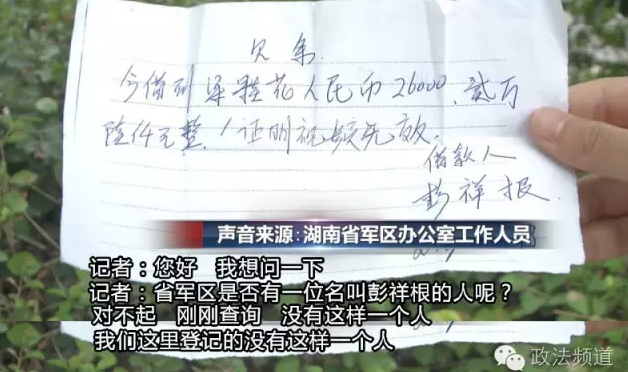 欠条
今借到梁桂花人民币26000.贰万
陆仟元整！证明视频无效.
借款人
彭祥报
声音来源:湖南省军区办公室工作人员
记者：您好 我想问一下
记者：省军区是否有一位名叫彭祥根的人呢？
对不起 刚刚查询 没有这样一个人
我们这里登记的没有这样一个人
政法频道